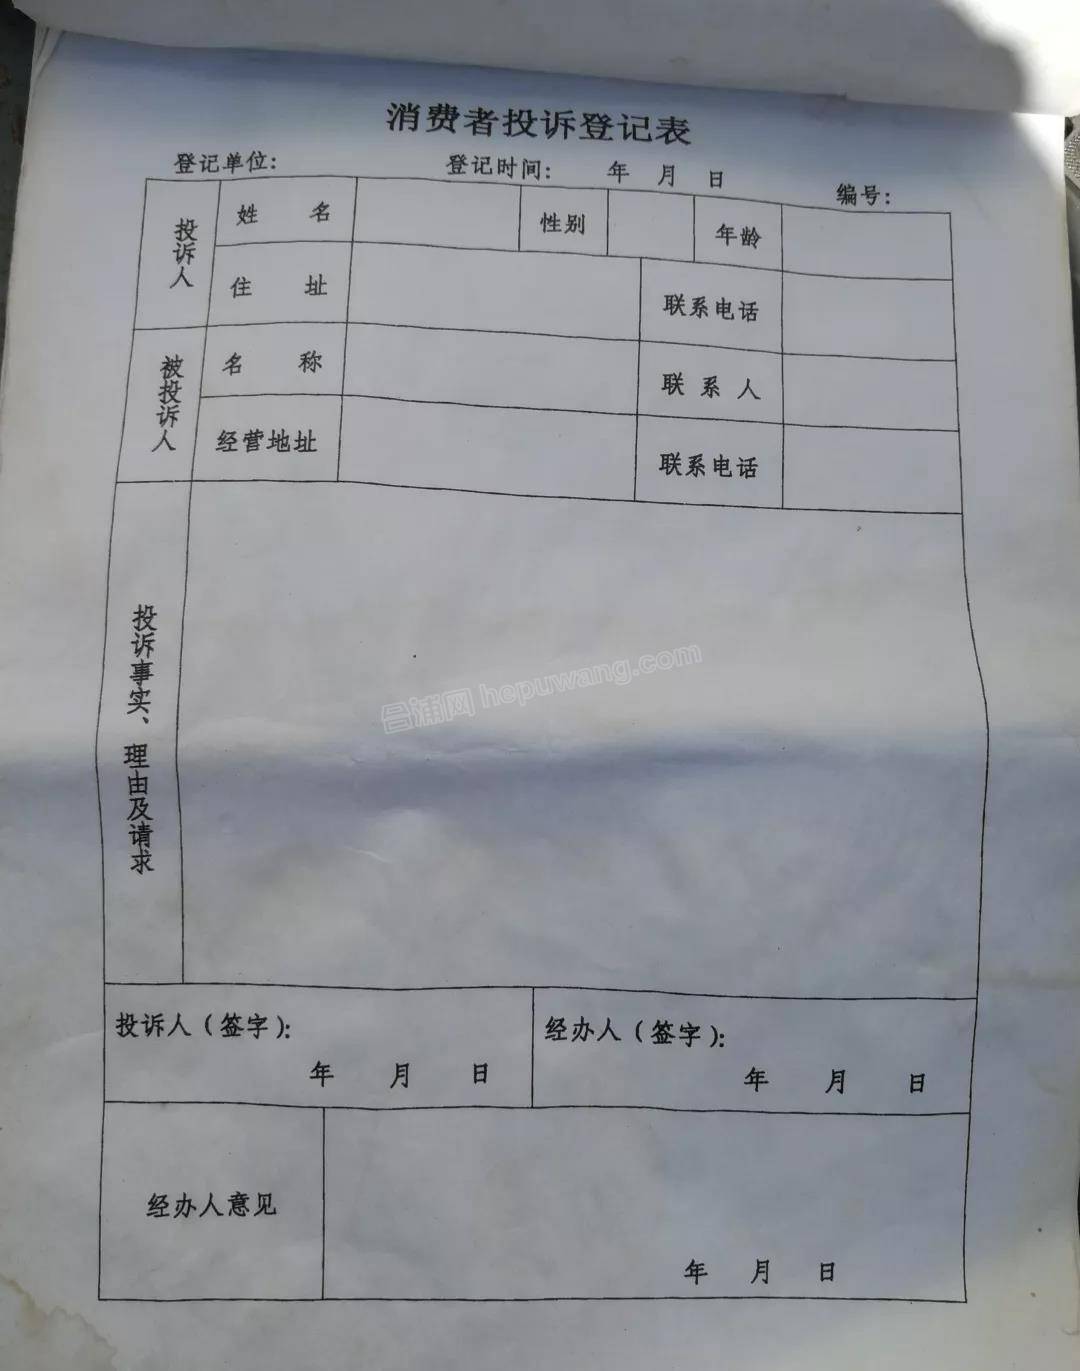 消费者投诉登记表
登记单位: 登记时间: 年 月 日 编号:
投诉人
姓 名 性别 年龄
住 址 联系电话
被投诉人
名 称 联 系 人
经营地址 联系电话
投诉事实、理由及请求
合浦网 hepuwang.com
投诉人(签字): 经办人(签字):
年 月 日 年 月 日
经办人意见
年 月 日